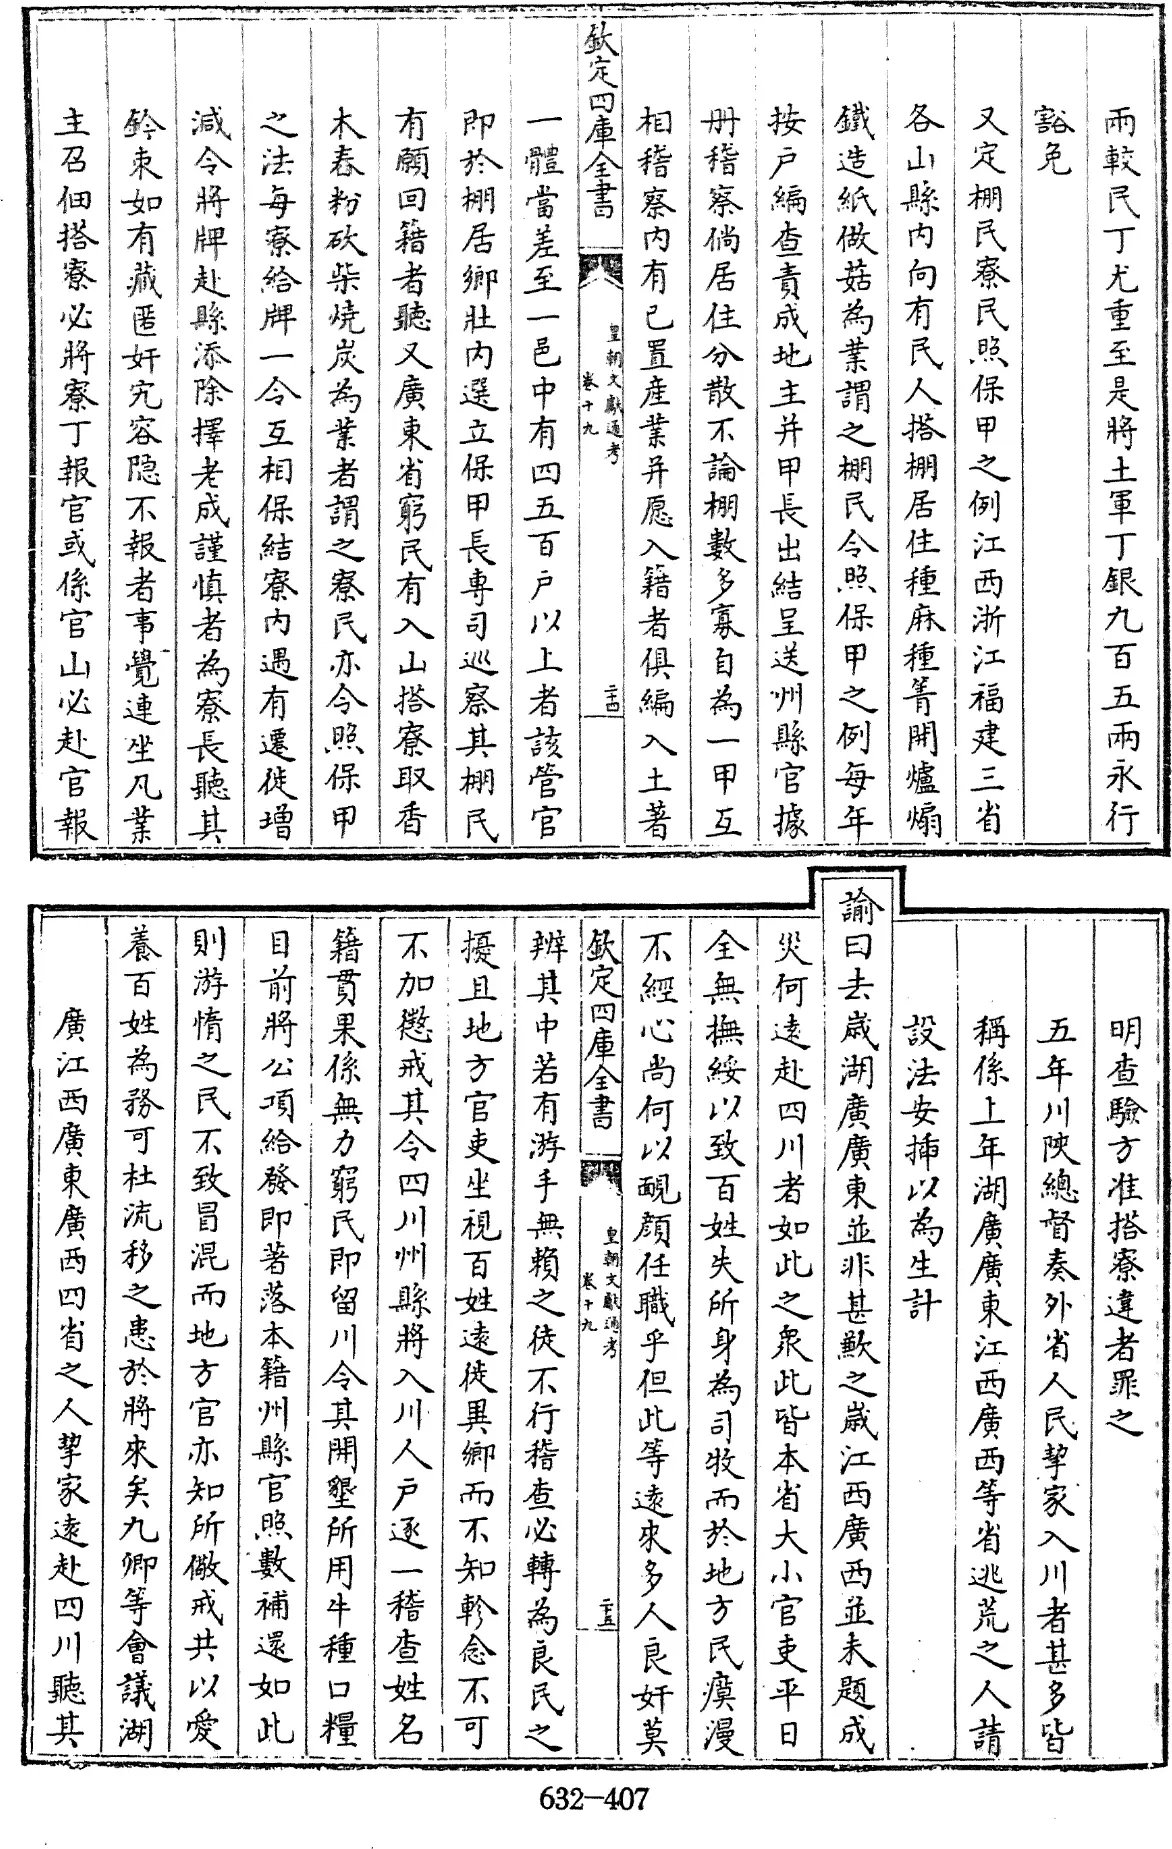 兩較民丁尤重至是將土軍丁銀九百五兩永行
豁免
又定棚民寮民照保甲之例江西浙江福建三省
各山縣内向有民人搭棚居住種麻種箐開爐煽
鐵造紙做菇為業謂之棚民令照保甲之例每年
按户編查責成地主并甲長出結呈送州縣官據
冊稽察倘居住分散不論棚數多寡自為一甲互
相稽察内有已置産業并愿入籍者俱編入土著
欽定四庫全書
皇朝文獻通考
卷十九
二十四
一體當差至一邑中有四五百户以上者該管官
即於棚居鄉壯内選立保甲長専司巡察其棚民
有願回籍者聽又廣東省窮民有入山搭寮取香
木舂粉砍柴燒炭為業者謂之寮民亦令照保甲
之法每寮給牌一令互相保結寮内遇有遷徙増
減令將牌赴縣添除擇老成謹慎者為寮長聽其
鈐束如有藏匿奸宄容隠不報者事覺連坐凡業
主召佃搭寮必將寮丁報官或係官山必赴官報
明查驗方准搭寮違者罪之
五年川陜總督奏外省人民挈家入川者甚多皆
稱係上年湖廣廣東江西廣西等省逃荒之人請
設法安揷以為生計
諭曰去歲湖廣廣東並非甚歉之歲江西廣西並未題成
災何遠赴四川者如此之衆此皆本省大小官吏平日
全無撫綏以致百姓失所身為司牧而於地方民瘼漫
不經心尚何以靦顔任職乎但此等遠來多人良奸莫
欽定四庫全書
皇朝文獻通考
卷十九
二十五
辨其中若有游手無賴之徒不行稽查必轉為良民之
擾且地方官吏坐視百姓遠徙異鄉而不知軫念不可
不加懲戒其令四川州縣將入川人户逐一稽查姓名
籍貫果係無力窮民即留川令其開墾所用牛種口糧
目前將公項給發即著落本籍州縣官照數補還如此
則游惰之民不致冒混而地方官亦知所儆戒共以愛
養百姓為務可杜流移之患於將來矣九卿等會議湖
廣江西廣東廣西四省之人挈家遠赴四川聽其
632-407